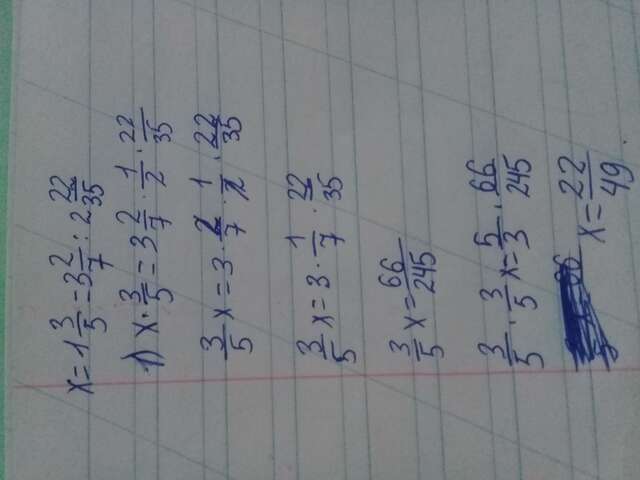 x=1 3/5=3 2/7:2 22/35
1) x·3/5=3 2/7·1/2·22/35
3/5 x=3·2/7·1/2·22/35
3/5 x=3·1/7·22/35
3/5 x=66/245
3/5·3/5 x=5/3·66/245
x=22/49